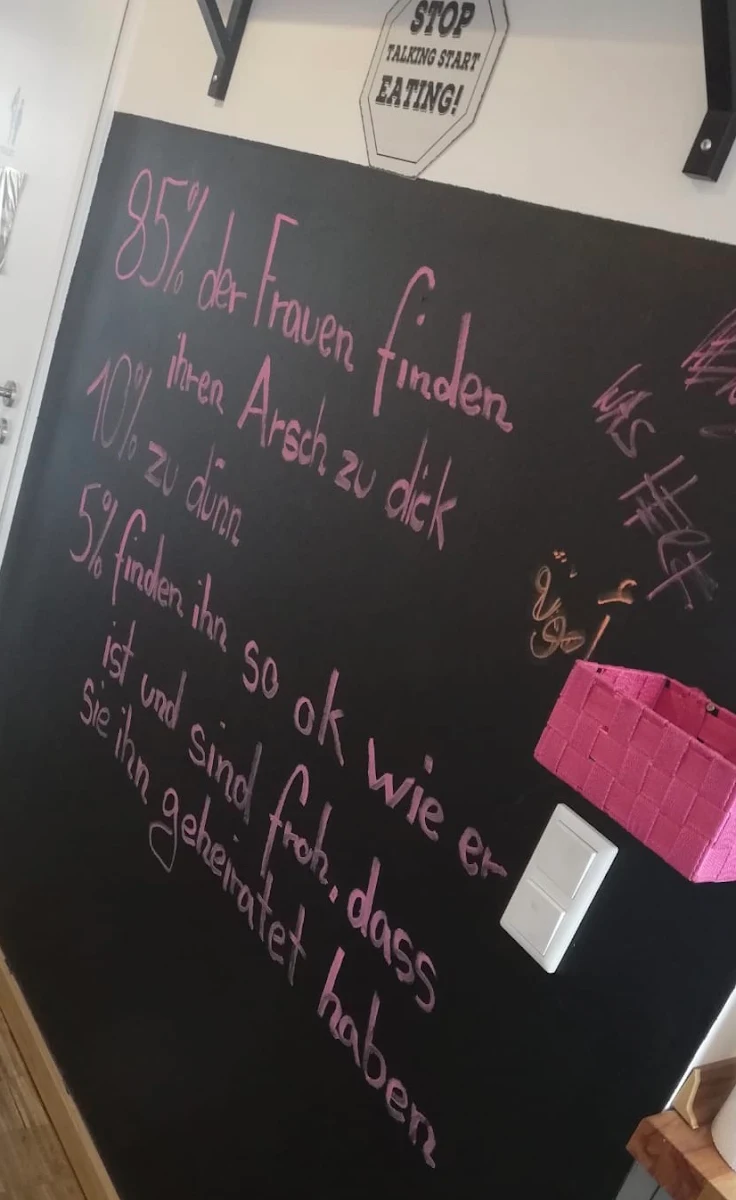 STOP
TALKING START
EATING!
85% der Frauen finden
ihren Arsch zu dick
10% zu dünn
5% finden ihn so ok wie er
ist und sind froh, dass
sie ihn geheiratet haben